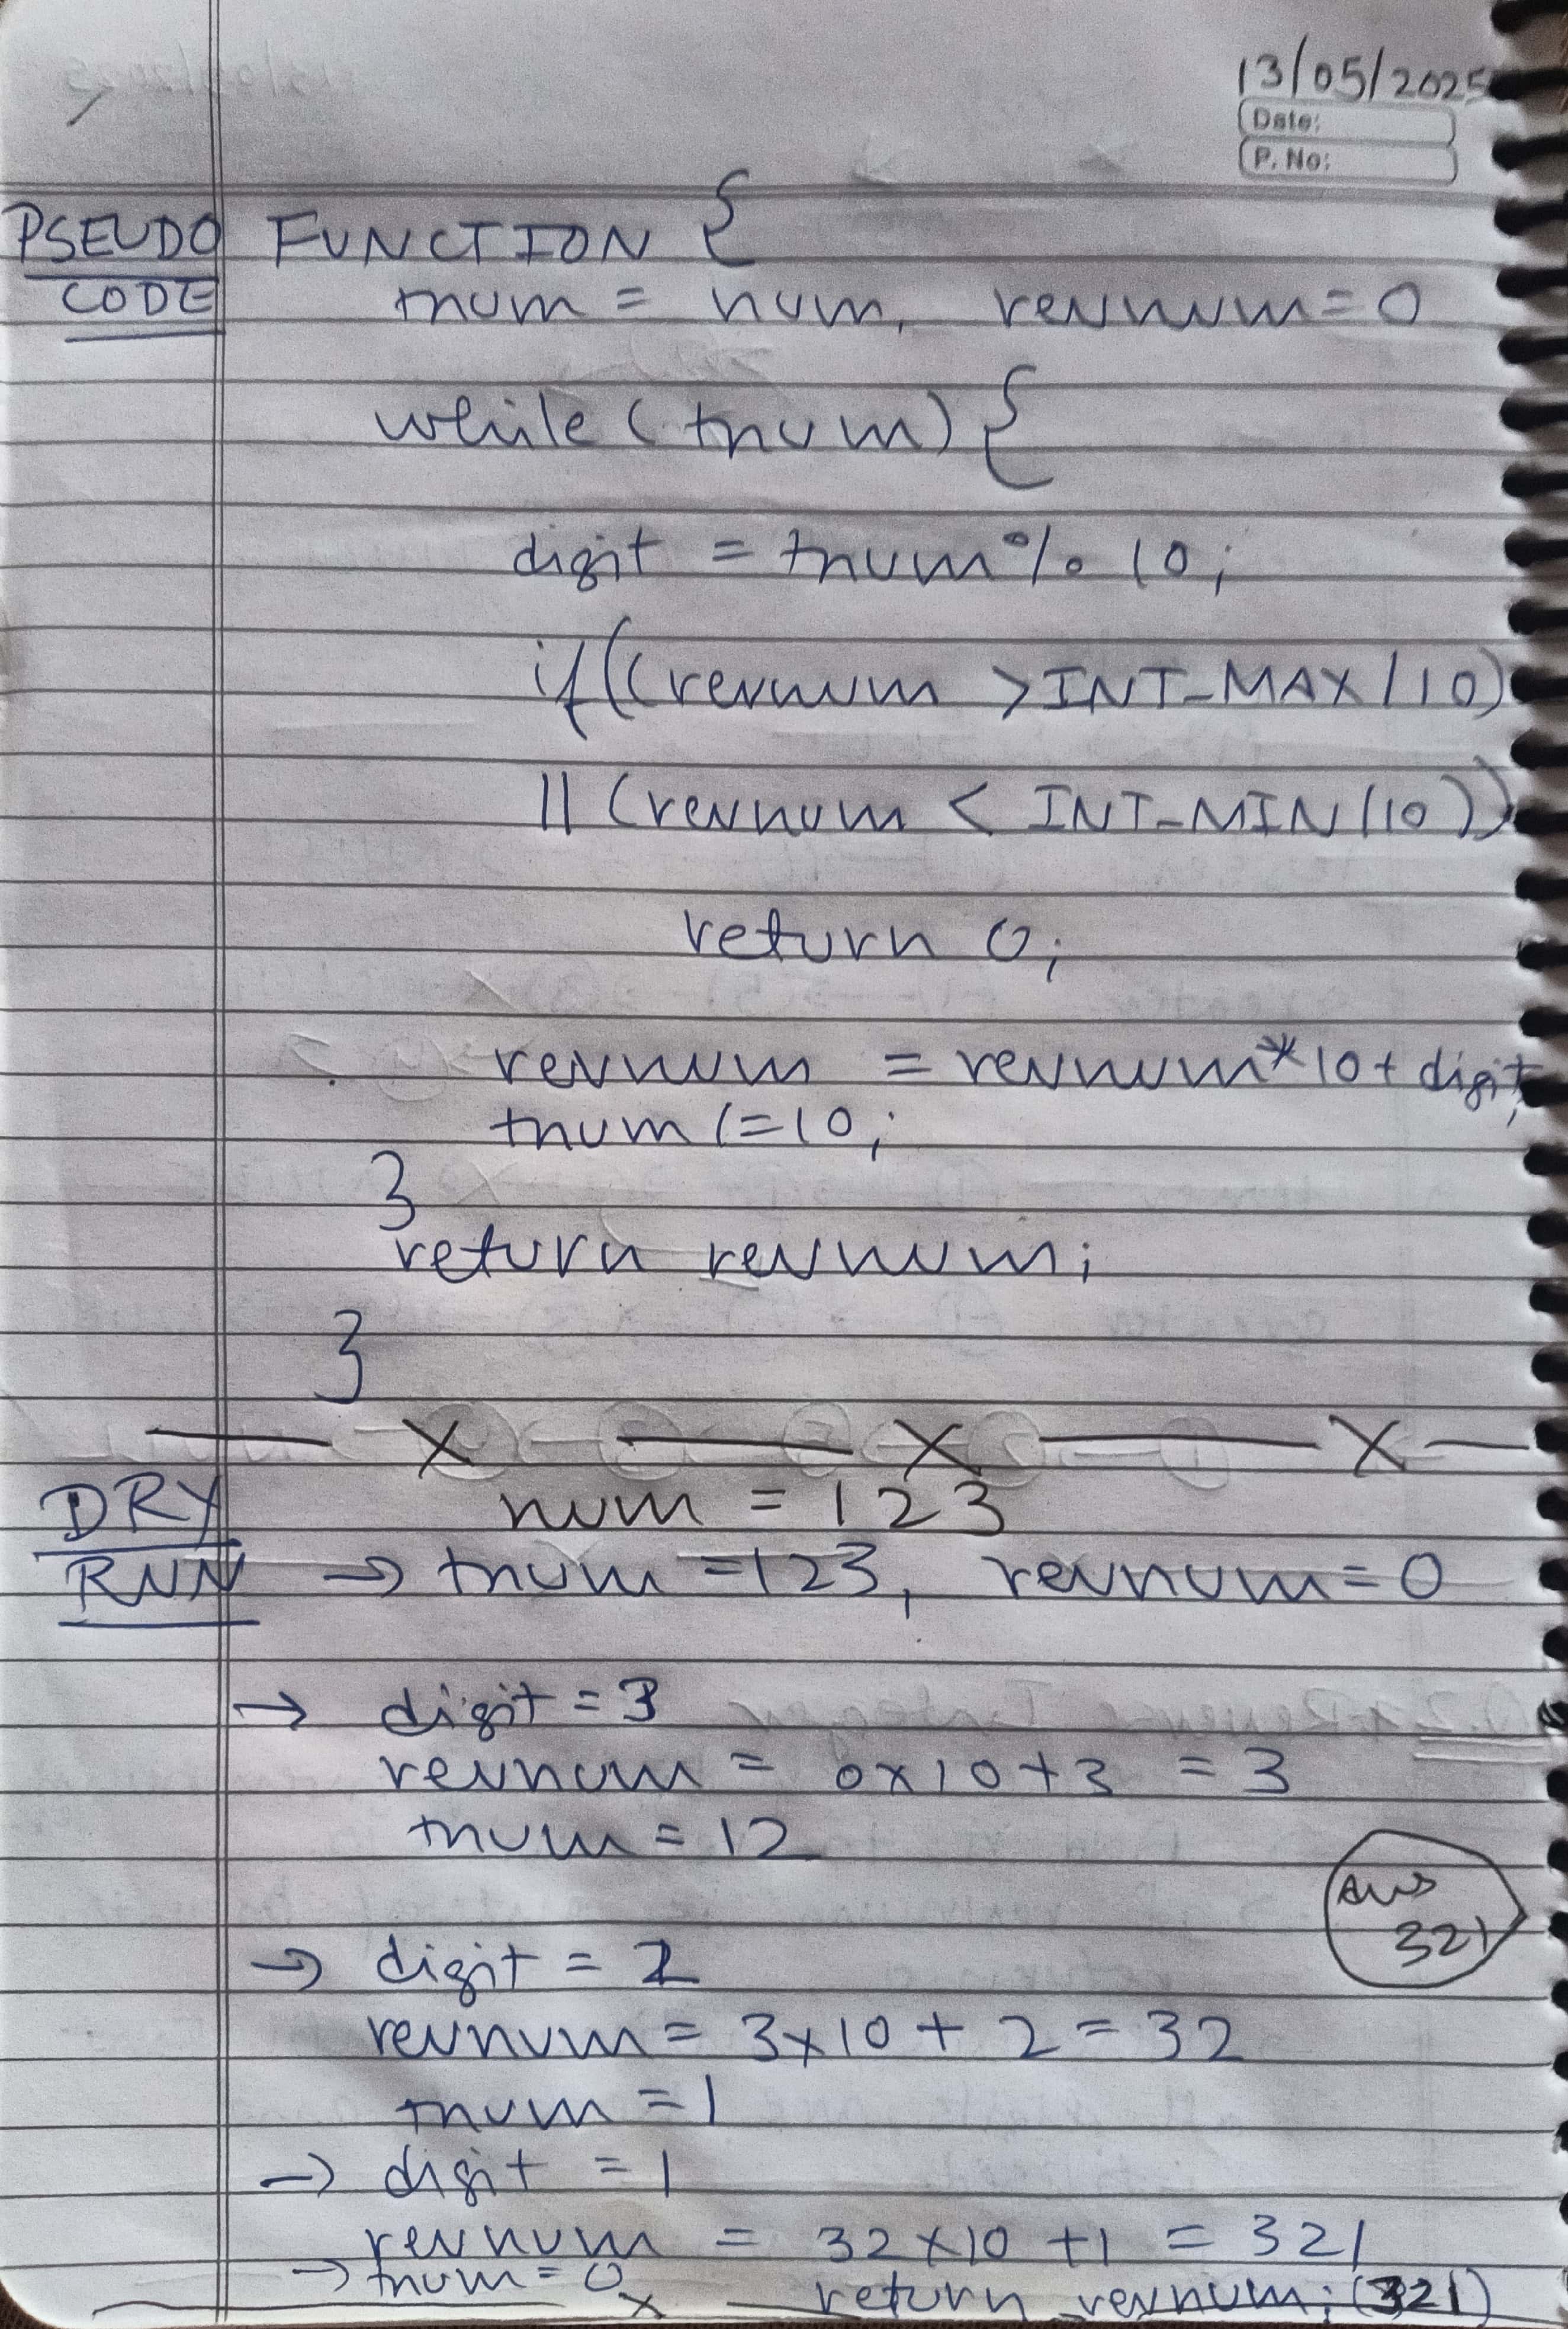 13/05/2025
Date:
P. No:
PSEUDO FUNCTION {
CODE tnum = num, revnum=0
while (tnum) {
digit = tnum % 10;
if((revnum > INT_MAX/10)
|| (revnum < INT_MIN/10))
return 0;
revnum = revnum*10+digit;
tnum /=10;
}
return revnum;
}
— X — X — X —
DRY num = 123
RUN → tnum =123, revnum=0
→ digit = 3
revnum = 0x10+3 = 3
tnum = 12
Ans
321
→ digit = 2
revnum = 3x10 + 2 = 32
tnum = 1
→ digit = 1
revnum = 32x10 +1 = 321
→ tnum = 0 x return revnum; (321)